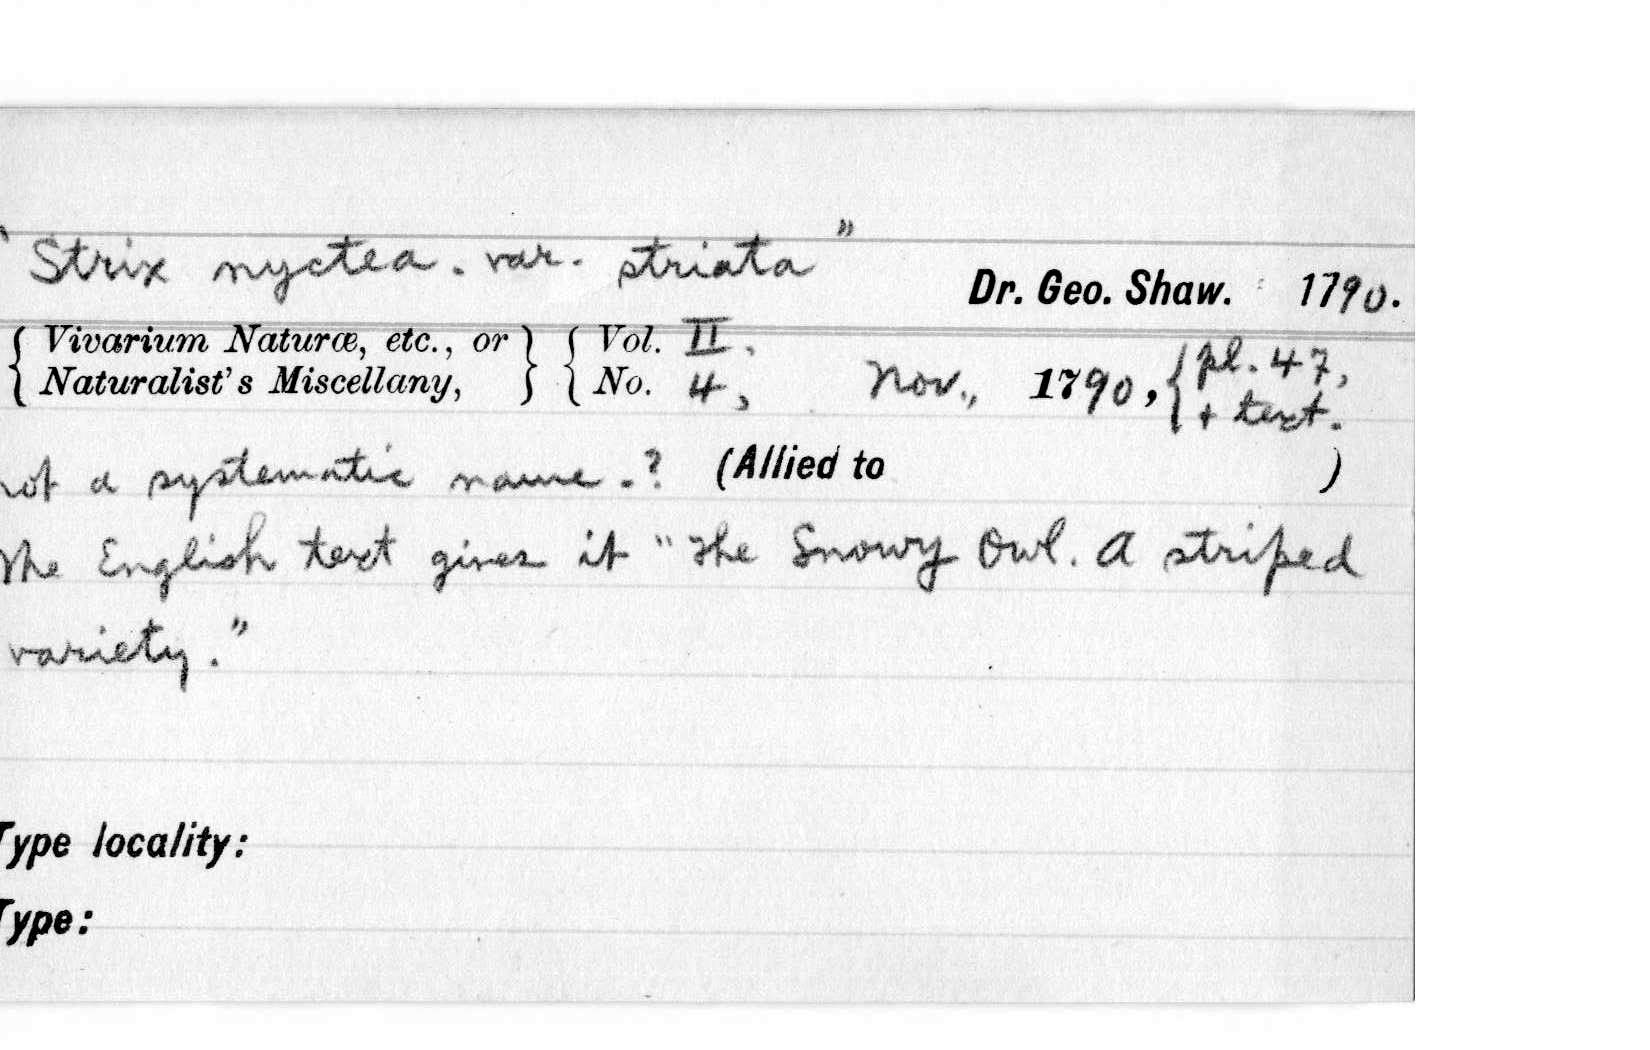 "Strix nyctea. var. striata"
Dr. Geo. Shaw. 1790.
{ Vivarium Naturæ, etc., or } { Vol. II.
{ Naturalist's Miscellany, } { No. 4, Nov., 1790, { pl. 47, + text.
not a systematic name.? (Allied to )
The English text gives it "The Snowy Owl. A striped
variety."
Type locality:
Type: